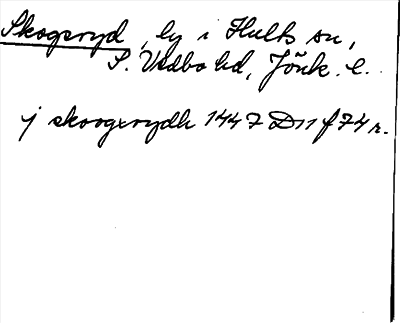 Skogsryd, by i Hults sn,
S. Vedbo hd, Jönk. l.
j skoogxrydh 1447 D11 f 74 r.